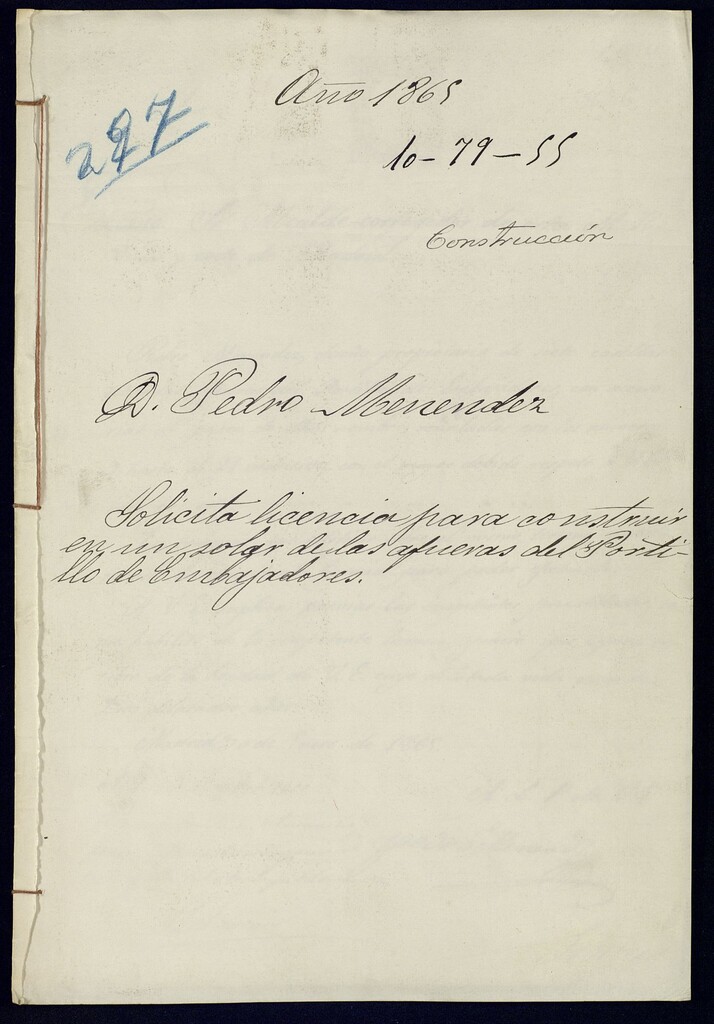 Año 1865
227
10-79-55
Construcción
D. Pedro Menendez
Solicita licencia para construir
en un solar de las afueras del Porti-
llo de Embajadores.